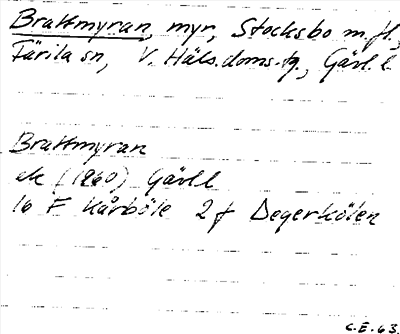 Brattmyran, myr, Stocksbo m.fl,
Färila sn, V. Häls.doms.tg, Gävl. l
Brattmyran
ek (1960) Gävl l
16 F Kårböle 2f Degerkölen
C.E.-63.